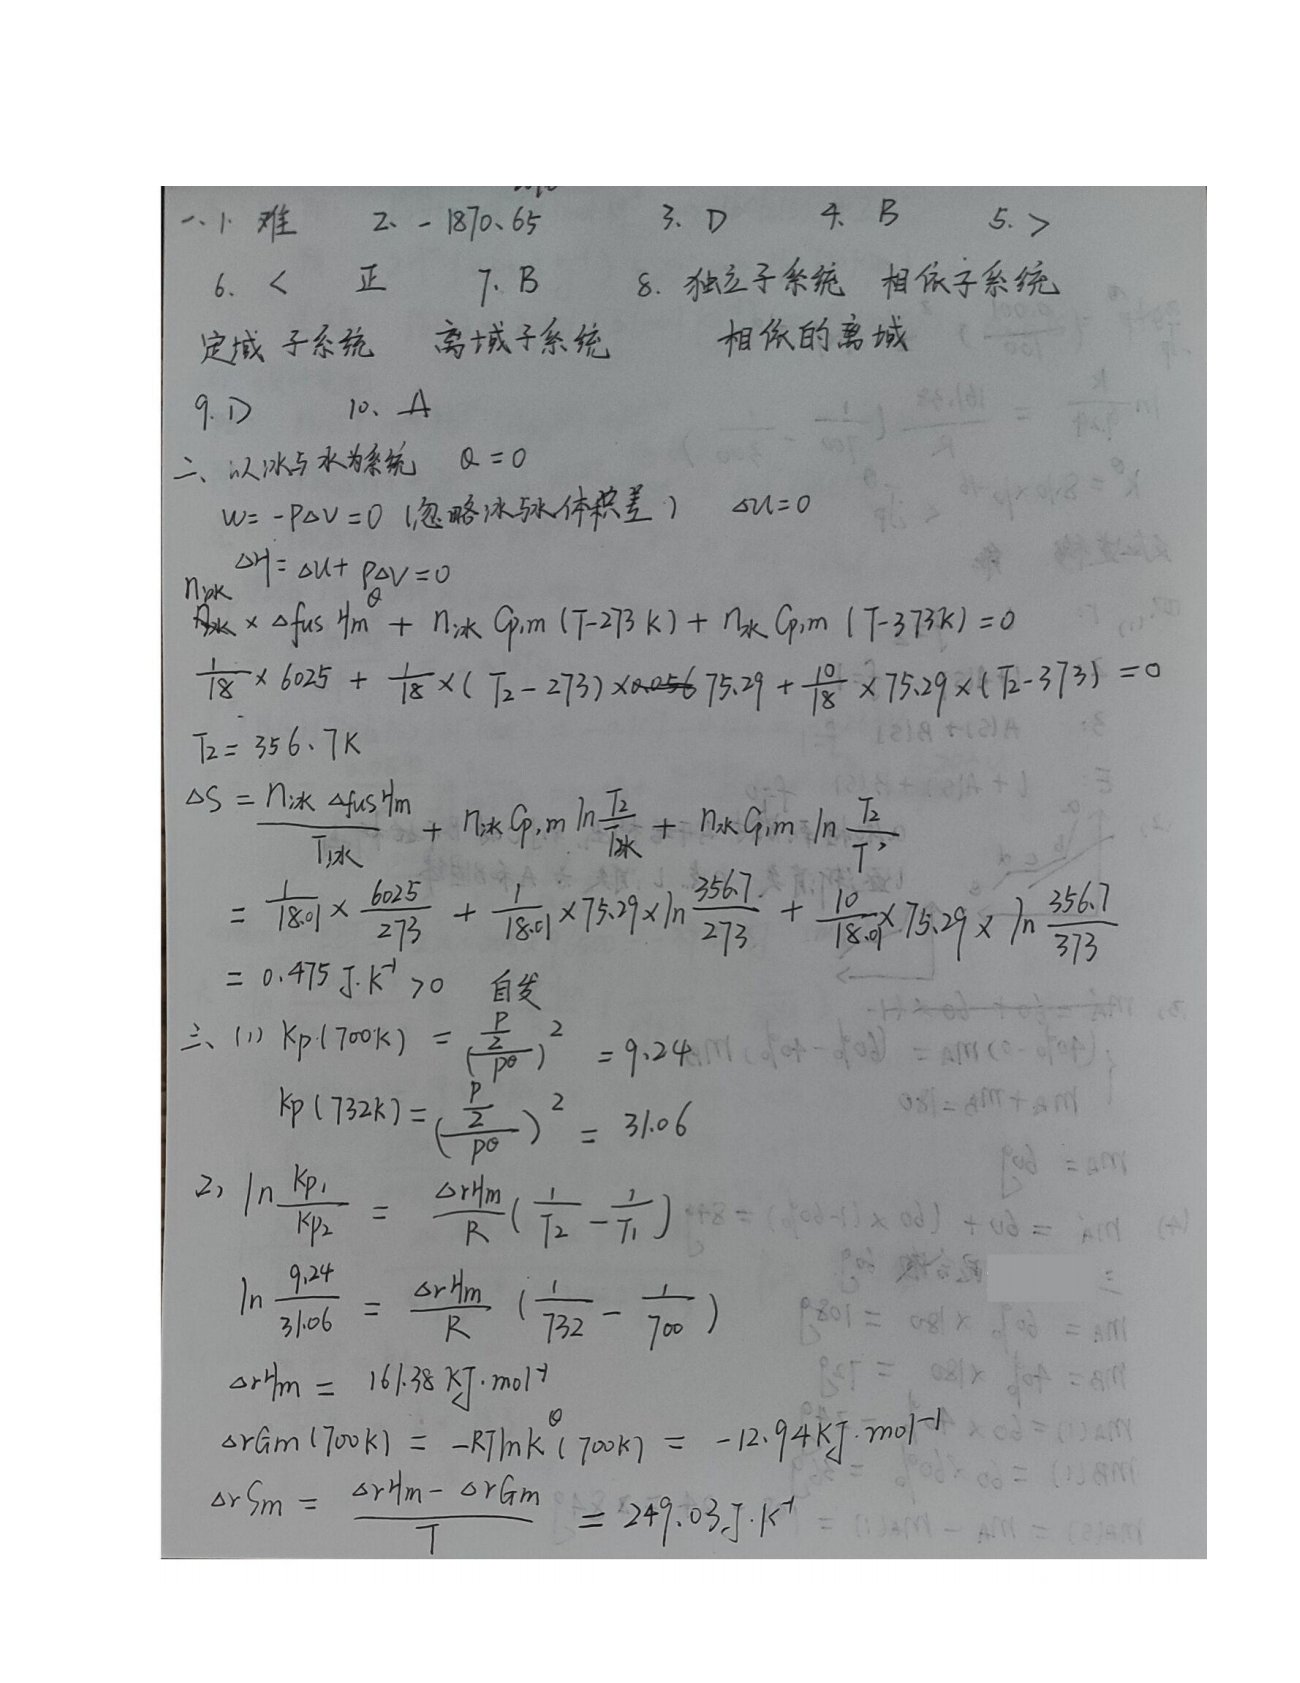 一、1. 难 2. -1870.65 3. D 4. B 5. >
6. < 正 7. B 8. 独立子系统 相依子系统
定域子系统 离域子系统 相依的离域
9. D 10. A
二、以冰与水为系统 Q=0
W=-PΔV=0 (忽略冰与水体积差) ΔU=0
ΔH=ΔU+PΔV=0
n冰×ΔfusHm^θ + n冰Cp,m(T-273K) + n水Cp,m(T-373K)=0
1/18×6025 + 1/18×(T2-273)×75.29 + 10/18×75.29×(T2-373)=0
T2=356.7K
ΔS = n冰ΔfusHm/T冰 + n冰Cp,m ln T2/T冰 + n水Cp,m ln T2/T
= 1/18.01 × 6025/273 + 1/18.01 ×75.29×ln 356.7/273 + 10/18.01 ×75.29× ln 356.7/373
= 0.475 J·K⁻¹ >0 自发
三、(1) Kp(700K) = (P/2 / P^θ)² = 9.24
Kp(732K) = (P/2 / P^θ)² = 31.06
2) ln Kp1/Kp2 = ΔrHm/R (1/T2 - 1/T1)
ln 9.24/31.06 = ΔrHm/R (1/732 - 1/700)
ΔrHm = 161.38 KJ·mol⁻¹
ΔrGm(700K) = -RTlnK^θ(700K) = -12.94KJ·mol⁻¹
ΔrSm = (ΔrHm-ΔrGm)/T = 249.03J·K⁻¹